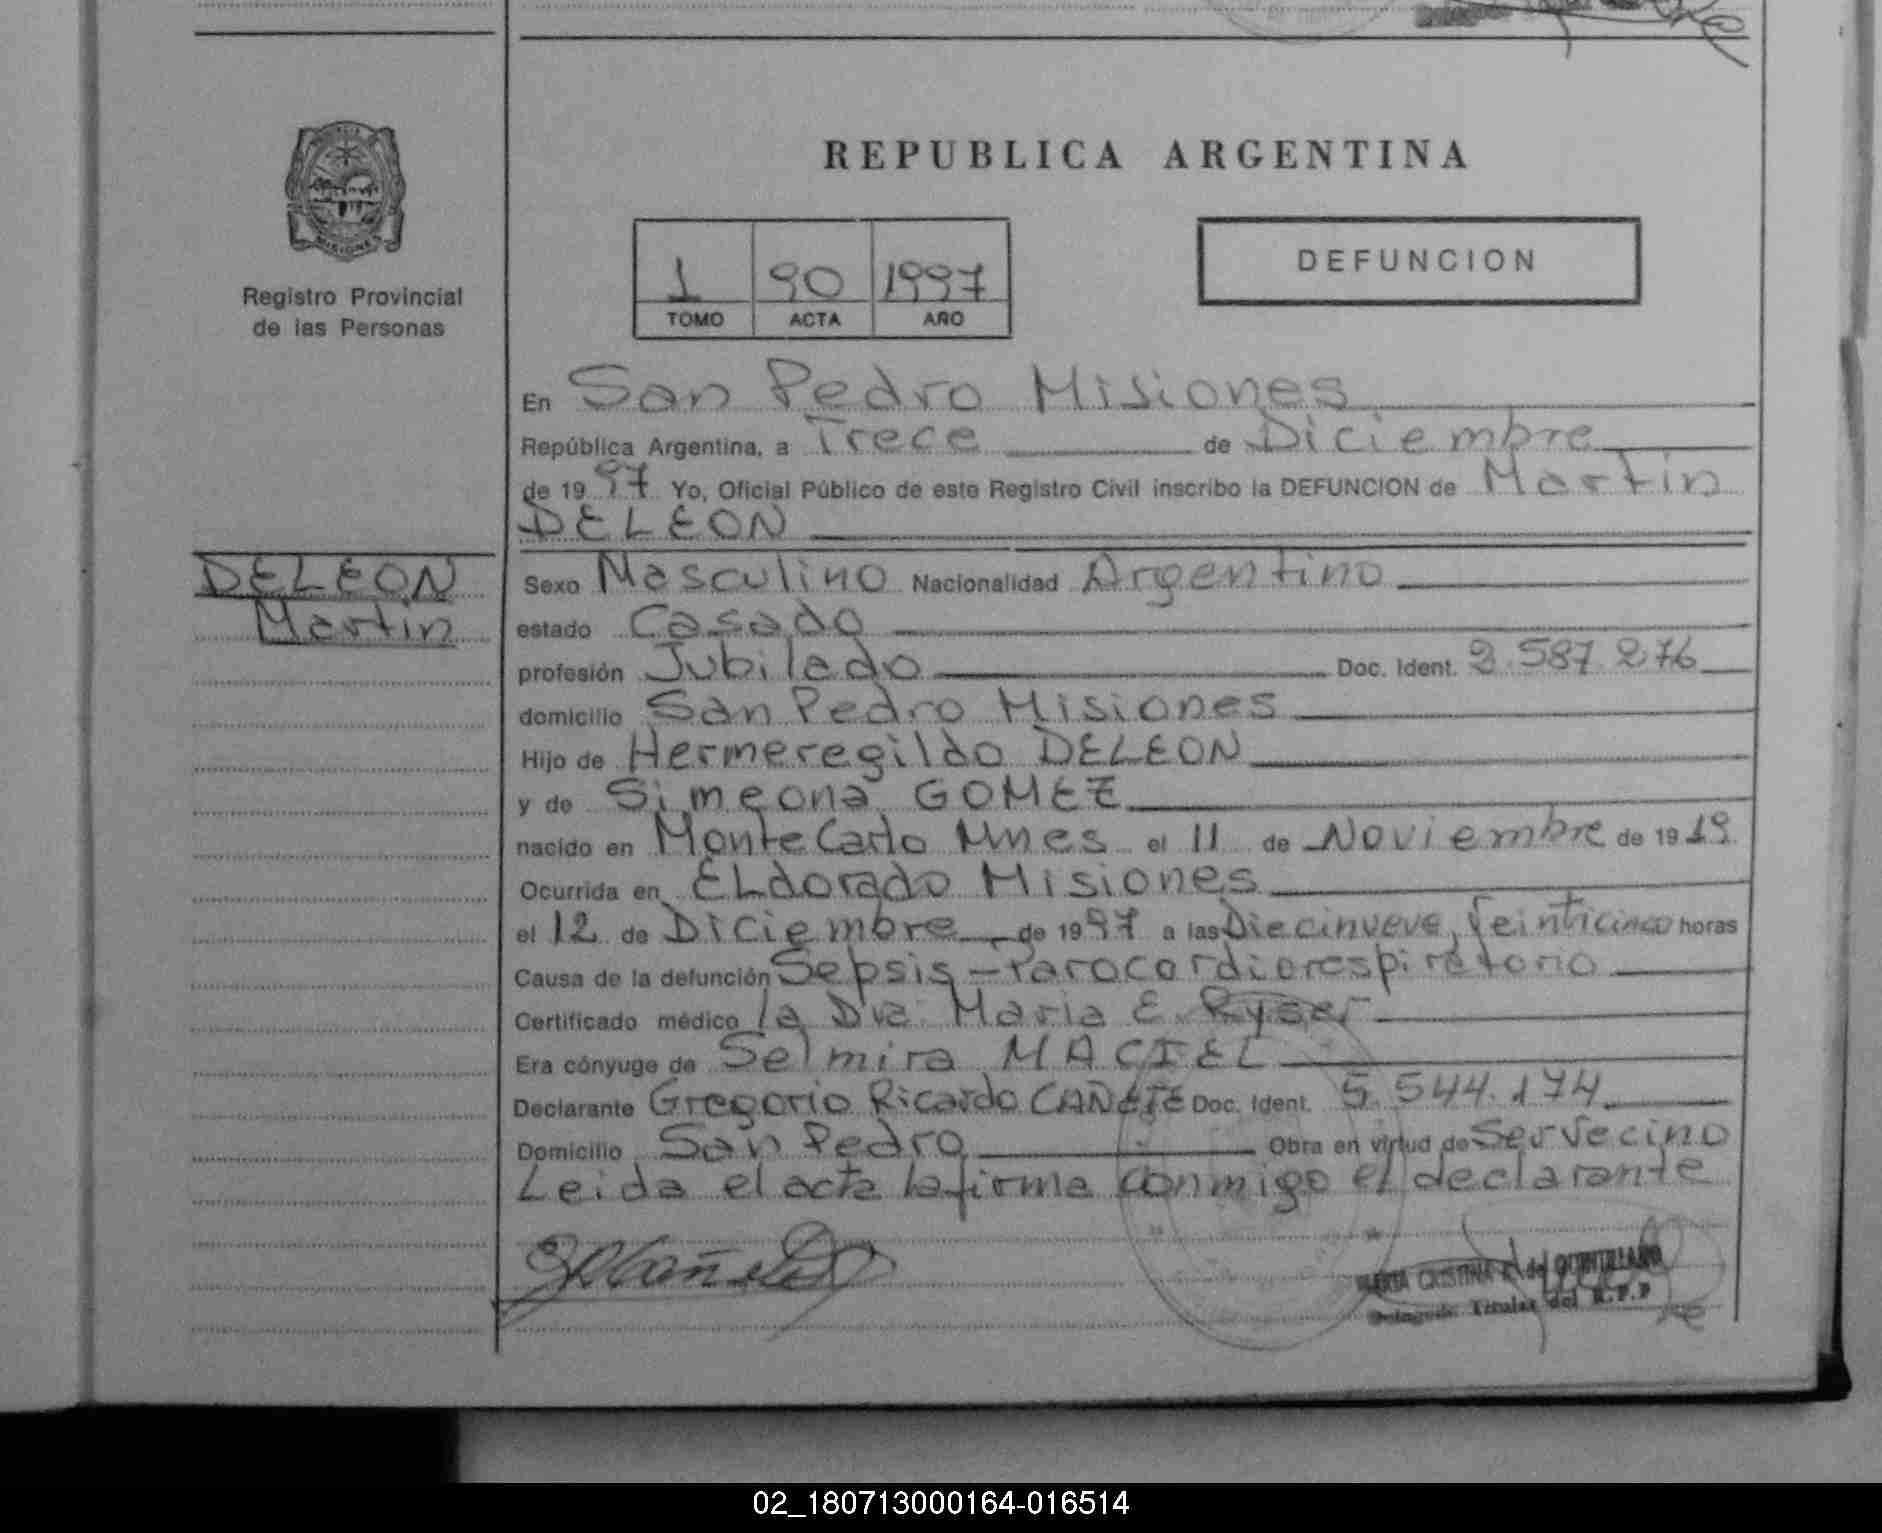 REPUBLICA ARGENTINA
MISIONES
Registro Provincial
de las Personas
1 90 1997
TOMO ACTA AÑO
DEFUNCION
En San Pedro Misiones
República Argentina, a Trece de Diciembre
de 1997 Yo, Oficial Público de este Registro Civil inscribo la DEFUNCION de Martin
DELEON
DELEON
Martin
Sexo Masculino Nacionalidad Argentino
estado Casado
profesión Jubilado Doc. Ident. 2.587.276
domicilio San Pedro Misiones
Hijo de Hermeregildo DELEON
y de Simeona GOMEZ
nacido en Monte Carlo Mnes el 11 de Noviembre de 1919
Ocurrida en ELdorado Misiones
el 12 de Diciembre de 1997 a las Diecinueve, Veinticinco horas
Causa de la defunción Sepsis - Parocardiorespiratorio
Certificado médico la Dra. Maria E. Ryser
Era cónyuge de Selmira MACIEL
Declarante Gregorio Ricardo CAÑETE Doc. Ident. 5.544.174
Domicilio San Pedro Obra en virtud de Ser Vecino
Leida el acta la firma conmigo el declarante
CRISTINA de QUINTILLANO
Titular del R.P.P
02_180713000164-016514